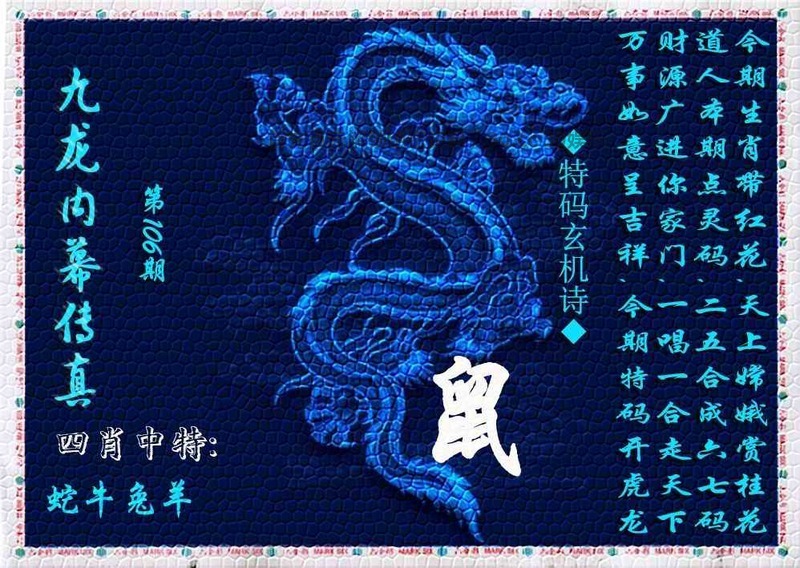 九龙内幕传真
第106期
四肖中特:
蛇牛兔羊
鼠
◆特码玄机诗◆
今期生肖带红花、天上嫦娥赏桂花
道人本期点灵码、二五合成六七码
财源广进你家门、一唱一合走天下
万事如意呈吉祥、今期特码开虎龙